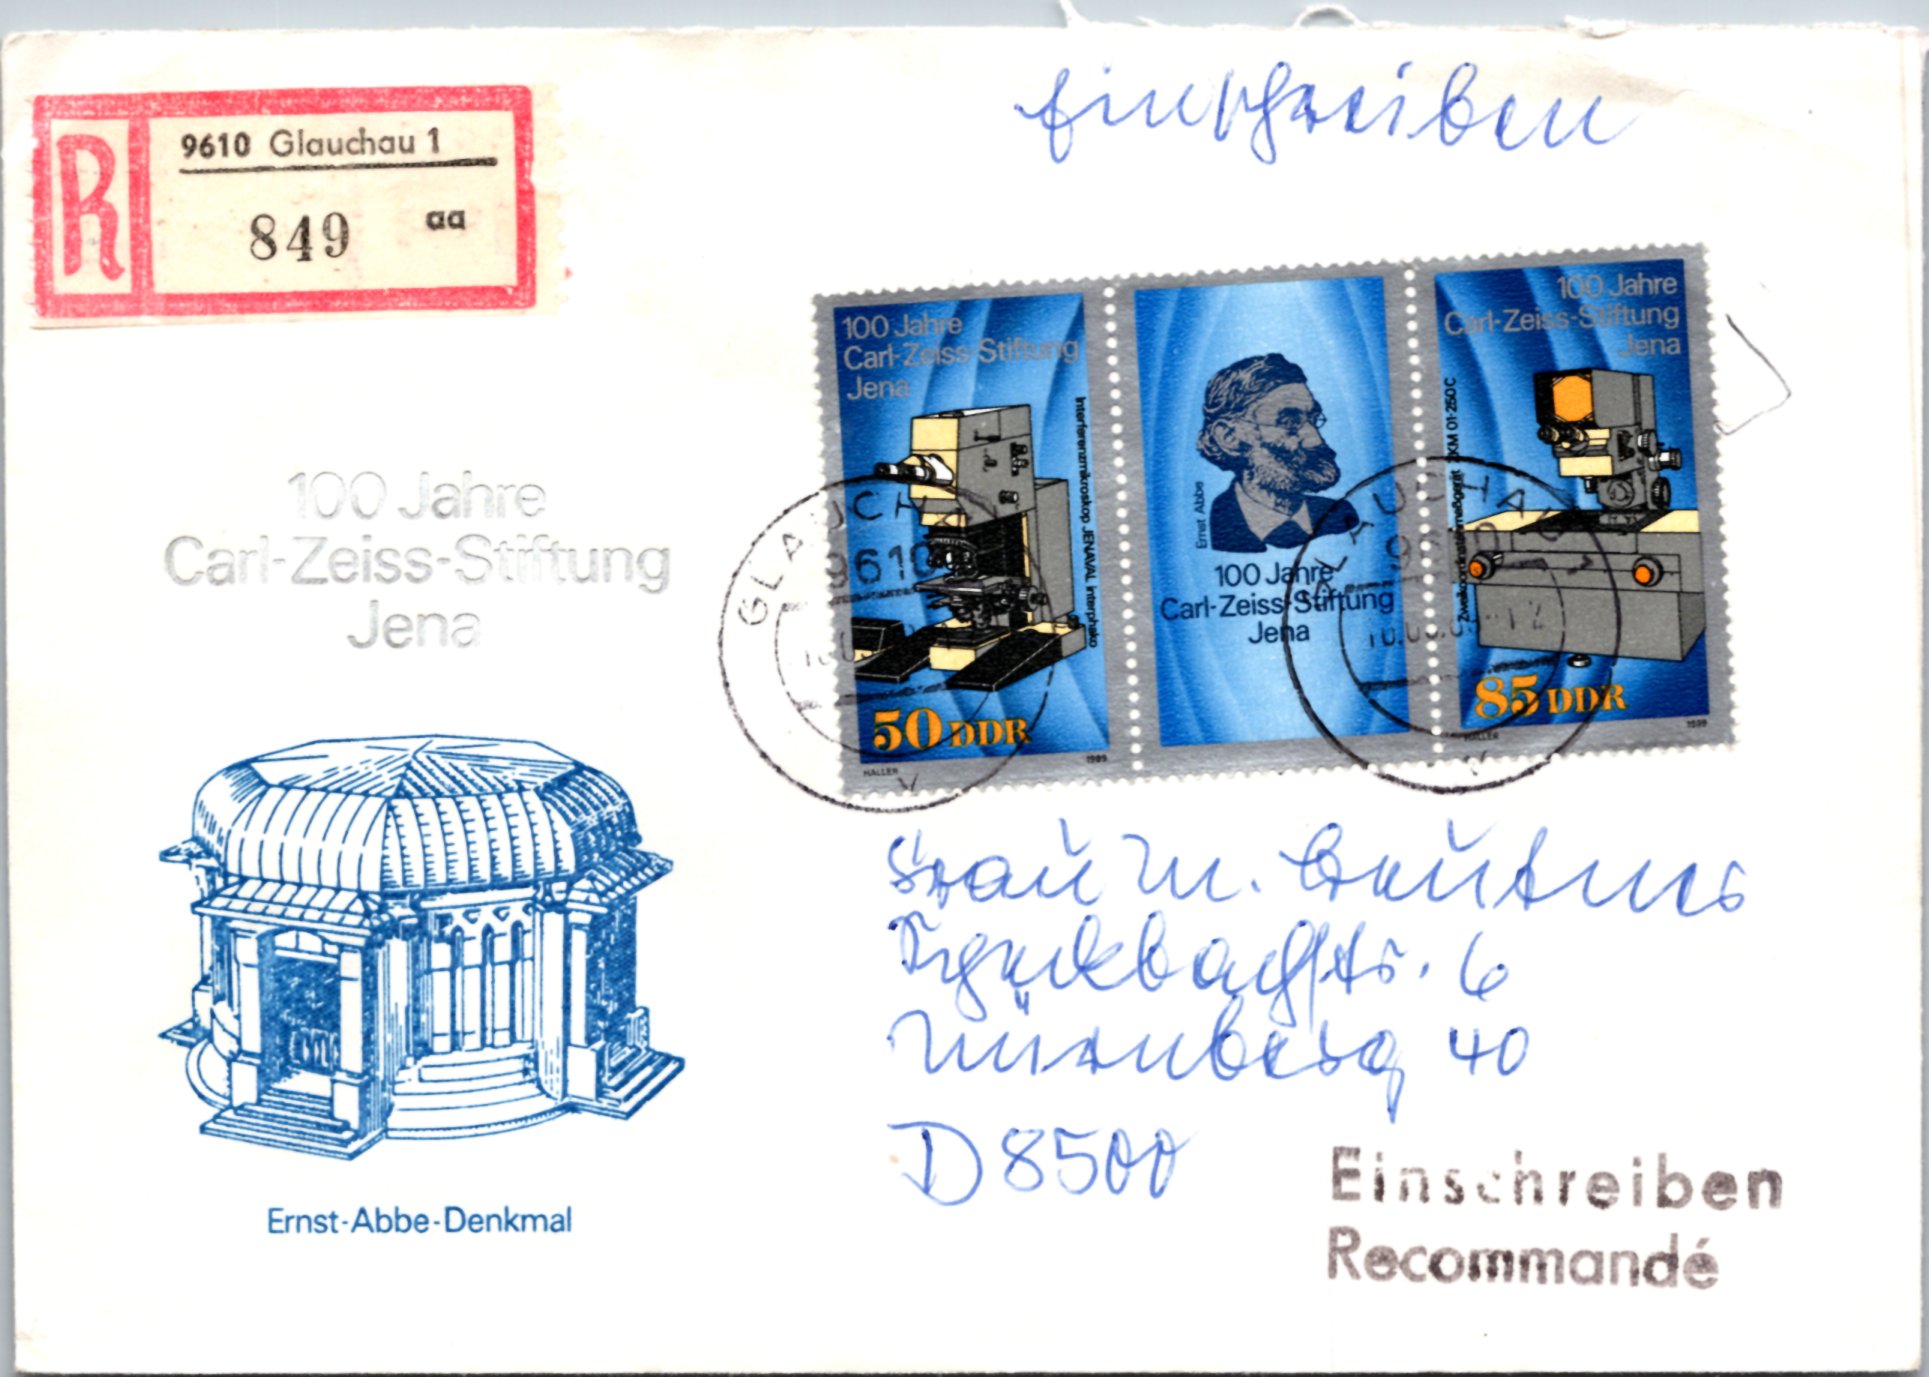 Einschreiben
9610 Glauchau 1
R
849 aa
100 Jahre
Carl-Zeiss-Stiftung
Jena
Interferenzmikroskop JENAVAL interphako
50 DDR
HALLER 1989
Ernst Abbe
100 Jahre
Carl-Zeiss-Stiftung
Jena
100 Jahre
Carl-Zeiss-Stiftung
Jena
Zweikoordinatenmeßgerät ZKM 01-250C
85 DDR
HALLER 1989
GLAUCHAU
9610
GLAUCHAU
100 Jahre
Carl-Zeiss-Stiftung
Jena
Ernst-Abbe-Denkmal
Frau M.
6
Nürnberg 40
D 8500
Einschreiben
Recommandé